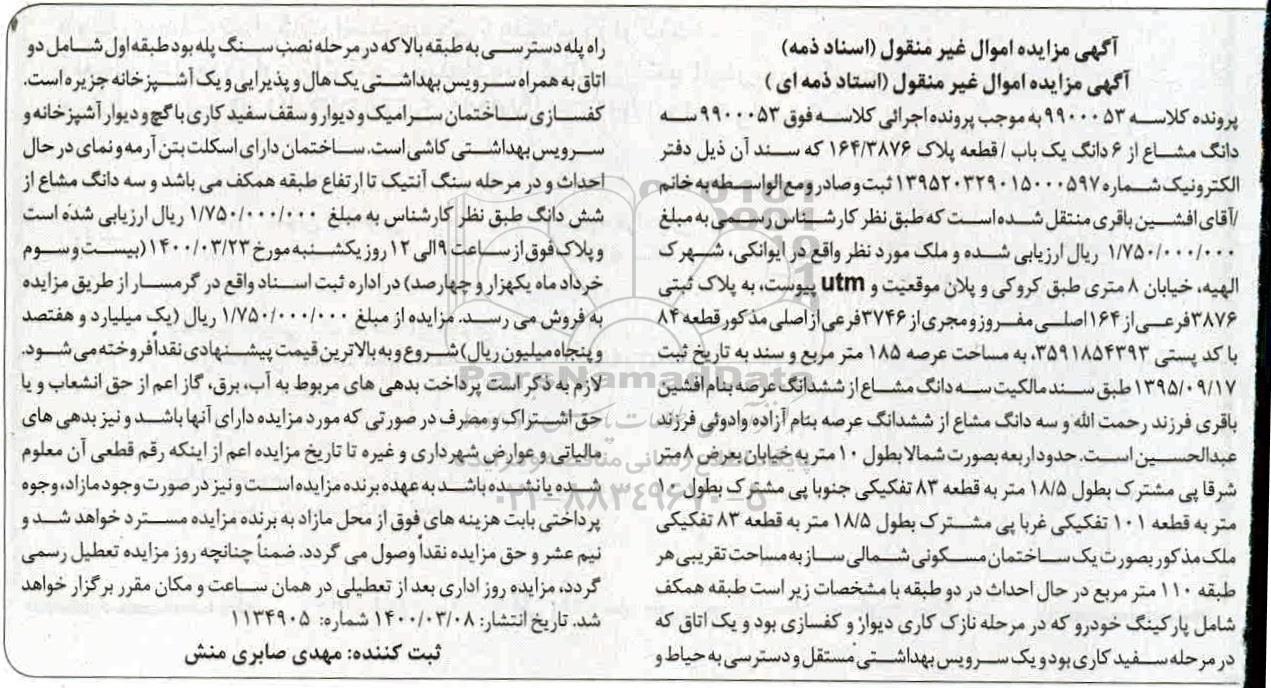 آگهی مزایده اموال غیر منقول (اسناد ذمه)
آگهی مزایده اموال غیر منقول (استاد ذمه ای )
پرونده کلاسه ۹۹۰۰۰۵۳ به موجب پرونده اجرائی کلاسه فوق ۹۹۰۰۰۵۳ سه
دانگ مشاع از ۶ دانگ یک باب / قطعه پلاک ۱۶۴/۳۸۷۶ که سند آن ذیل دفتر
الکترونیک شماره ۱۳۹۵۲۰۳۲۹۰۱۵۰۰۰۵۹۷ ثبت و صادر و مع الواسطه به خانم
/آقای افشین باقری منتقل شده است که طبق نظر کارشناس رسمی به مبلغ
۱/۷۵۰/۰۰۰/۰۰۰ ریال ارزیابی شده و ملک مورد نظر واقع در ایوانکی، شهرک
الهیه، خیابان ۸ متری طبق کروکی و پلان موقعیت و utm پیوست، به پلاک ثبتی
۳۸۷۶فرعی از ۱۶۴اصلی مفروز و مجری از ۳۷۴۶فرعی از اصلی مذکور قطعه ۸۴
با کد پستی ۳۵۹۱۸۵۴۳۹۳، به مساحت عرصه ۱۸۵ متر مربع و سند به تاریخ ثبت
۱۳۹۵/۰۹/۱۷ طبق سند مالکیت سه دانگ مشاع از ششدانگ عرصه بنام افشین
باقری فرزند رحمت الله و سه دانگ مشاع از ششدانگ عرصه بنام آزاده وادوئی فرزند
عبدالحسین است. حدود اربعه بصورت شمالا بطول ۱۰ متر به خیابان بعرض ۸ متر
شرقا پی مشترک بطول ۱۸/۵ متر به قطعه ۸۳ تفکیکی جنوبا پی مشترک بطول ۱۰
متر به قطعه ۱۰۱ تفکیکی غربا پی مشترک بطول ۱۸/۵ متر به قطعه ۸۳ تفکیکی
ملک مذکور بصورت یک ساختمان مسکونی شمالی ساز به مساحت تقریبی هر
طبقه ۱۱۰ متر مربع در حال احداث در دو طبقه با مشخصات زیر است طبقه همکف
شامل پارکینگ خودرو که در مرحله نازک کاری دیوار و کفسازی بود و یک اتاق که
در مرحله سفید کاری بود و یک سرویس بهداشتی مستقل و دسترسی به حیاط و
راه پله دسترسی به طبقه بالا که در مرحله نصب سنگ پله بود طبقه اول شامل دو
اتاق به همراه سرویس بهداشتی یک هال و پذیرایی و یک آشپزخانه جزیره است.
کفسازی ساختمان سرامیک و دیوار و سقف سفید کاری با گچ و دیوار آشپزخانه و
سرویس بهداشتی کاشی است. ساختمان دارای اسکلت بتن آرمه و نمای در حال
احداث و در مرحله سنگ آنتیک تا ارتفاع طبقه همکف می باشد و سه دانگ مشاع از
شش دانگ طبق نظر کارشناس به مبلغ ۱/۷۵۰/۰۰۰/۰۰۰ ریال ارزیابی شده است
و پلاک فوق از ساعت ۹ الی ۱۲ روز یکشنبه مورخ ۱۴۰۰/۰۳/۲۳ (بیست و سوم
خرداد ماه یکهزار و چهارصد) در اداره ثبت اسناد واقع در گرمسار از طریق مزایده
به فروش می رسد. مزایده از مبلغ ۱/۷۵۰/۰۰۰/۰۰۰ ریال (یک میلیارد و هفتصد
و پنجاه میلیون ریال) شروع و به بالاترین قیمت پیشنهادی نقداً فروخته می شود.
لازم به ذکر است پرداخت بدهی های مربوط به آب، برق، گاز اعم از حق انشعاب و یا
حق اشتراک و مصرف در صورتی که مورد مزایده دارای آنها باشد و نیز بدهی های
مالیاتی و عوارض شهرداری و غیره تا تاریخ مزایده اعم از اینکه رقم قطعی آن معلوم
شده یا نشده باشد به عهده برنده مزایده است و نیز در صورت وجود مازاد، وجوه
پرداختی بابت هزینه های فوق از محل مازاد به برنده مزایده مسترد خواهد شد و
نیم عشر و حق مزایده نقداً وصول می گردد. ضمناً چنانچه روز مزایده تعطیل رسمی
گردد، مزایده روز اداری بعد از تعطیلی در همان ساعت و مکان مقرر برگزار خواهد
شد. تاریخ انتشار: ۱۴۰۰/۰۳/۰۸ شماره: ۱۱۳۴۹۰۵
ثبت کننده: مهدی صابری منش
ParsNamadData
۰۲۱-۸۸۳۴۹۶۷۰-۵